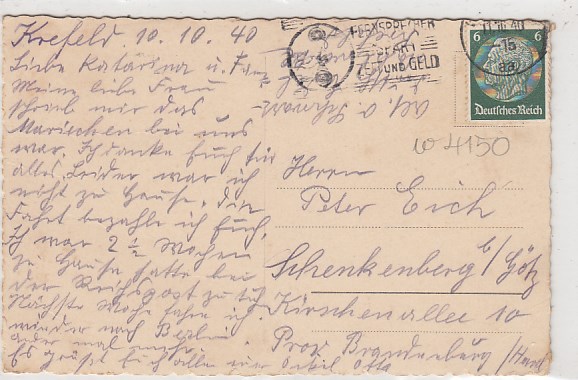 Krefeld 10.10.40
Liebe Katarina u. Fam
Meine liebe Frau
schrieb mir das
Mariechen bei uns
war. Ich danke Euch für
alles. Leider war ich
nicht zu Hause, die
Fahrt bezahle ich Euch.
Ich war 2 1/2 Wochen
zu Hause hatte bei
der Reichspost zu tuh
Nächste Woche fahre ich
wieder nach Berlin
oder mal mehr.
Es grüst Euch alle eur Onkel Otto
FERNSPRECHER
SPART
ZEIT UND GELD
10.40
-15
6 6
Deutsches Reich
W 4150
Herrn
Peter Eich
Schenkenberg b/ Götz
Kirschenallee 10
Prov Brandenburg / Havel